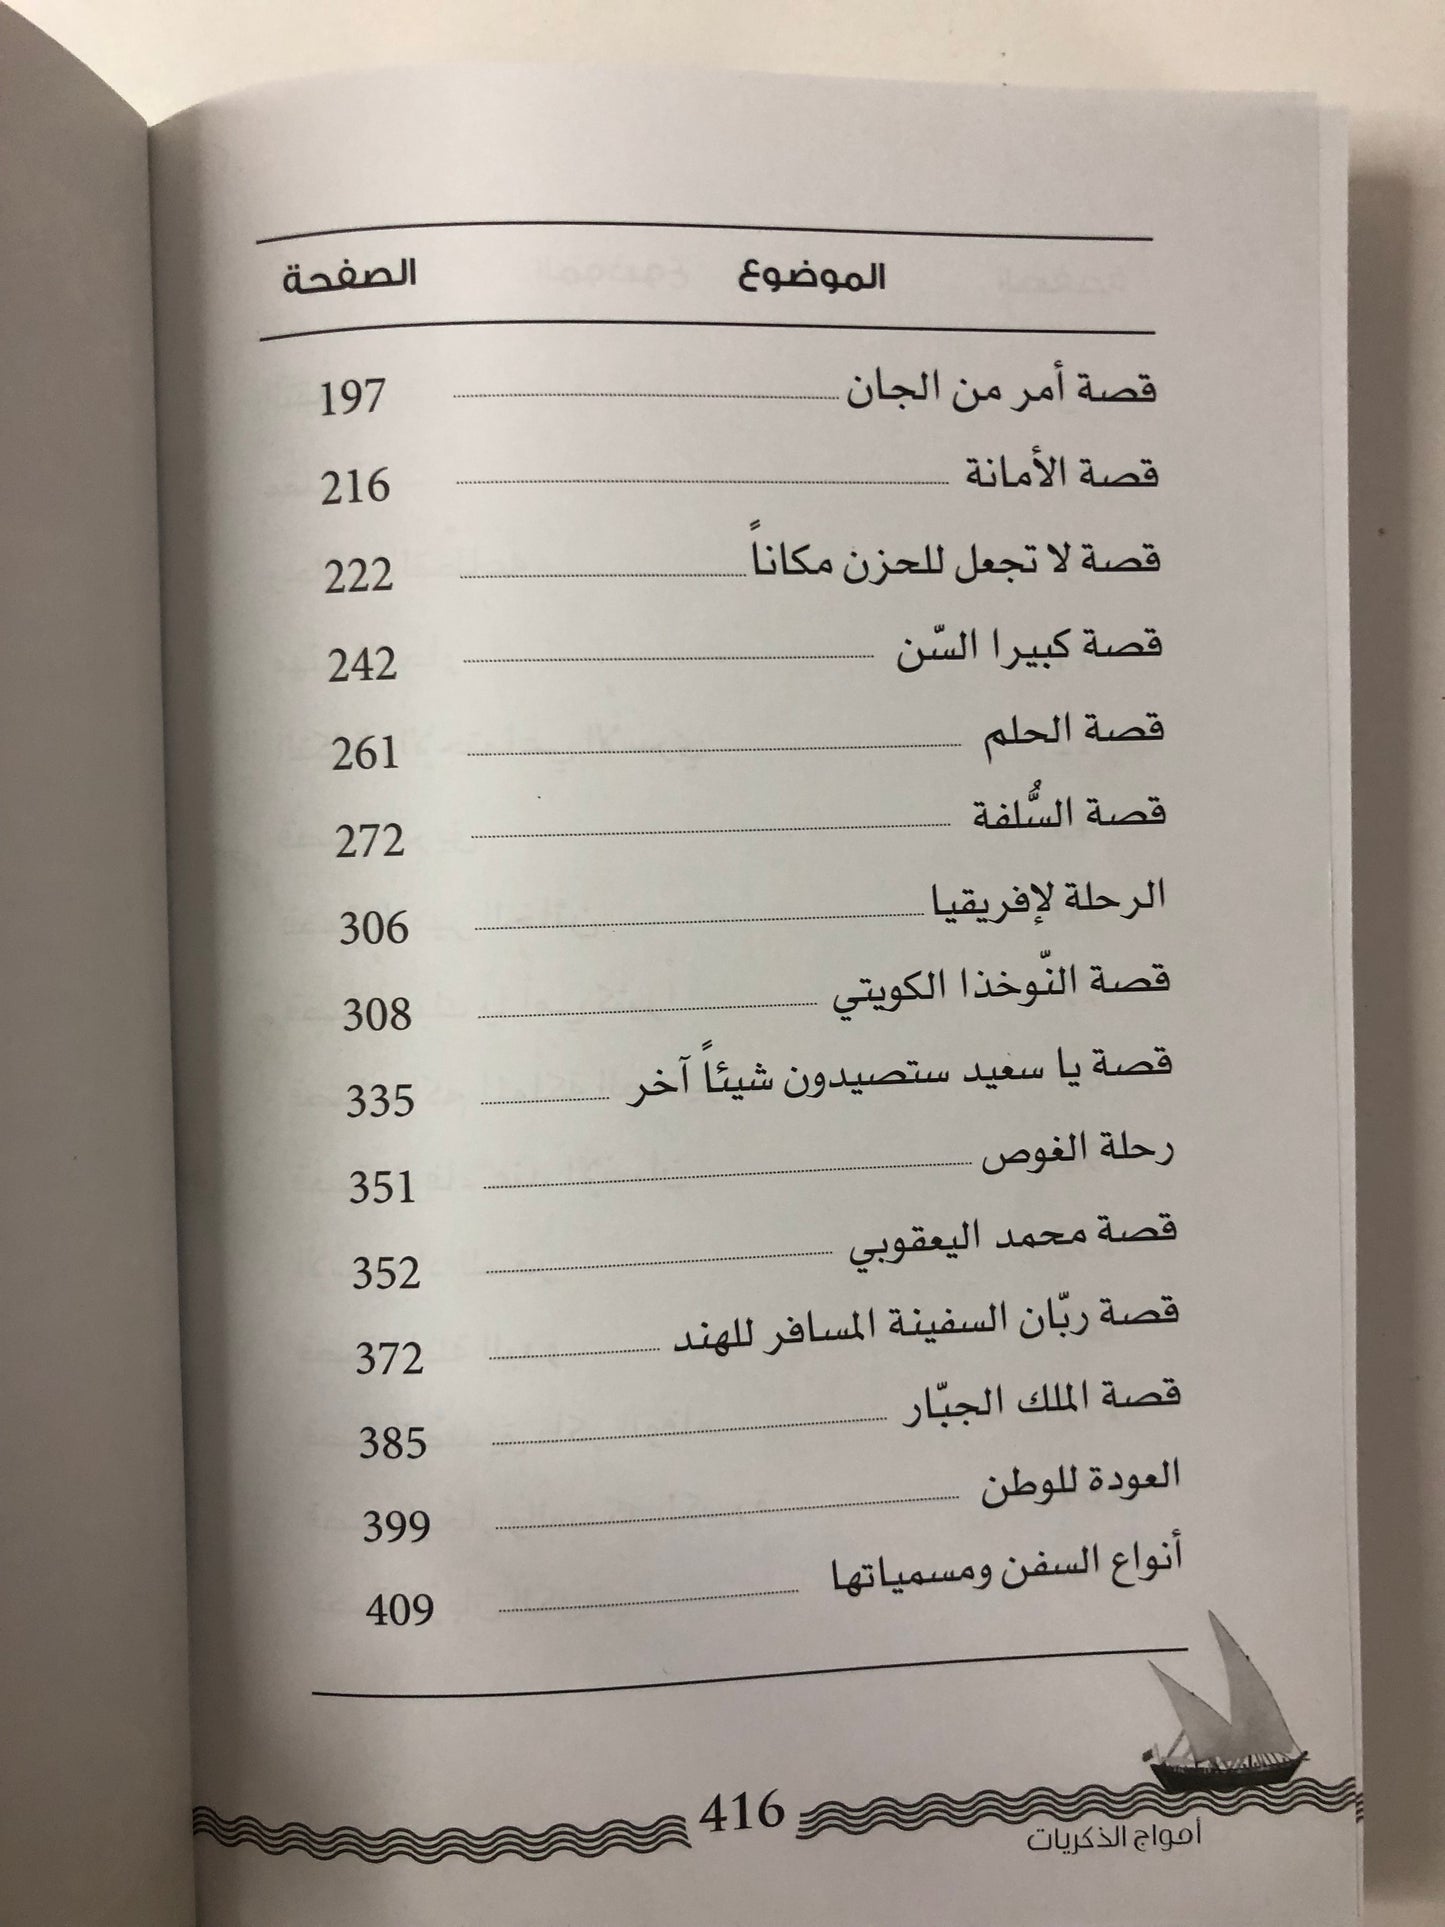 الموضوع الصفحة
قصة أمر من الجان 197
قصة الأمانة 216
قصة لا تجعل للحزن مكاناً 222
قصة كبيرا السّن 242
قصة الحلم 261
قصة السُّلفة 272
الرحلة لإفريقيا 306
قصة النّوخذا الكويتي 308
قصة يا سعيد ستصيدون شيئاً آخر 335
رحلة الغوص 351
قصة محمد اليعقوبي 352
قصة ربّان السفينة المسافر للهند 372
قصة الملك الجبّار 385
العودة للوطن 399
أنواع السفن ومسمياتها 409
416
أمواج الذكريات